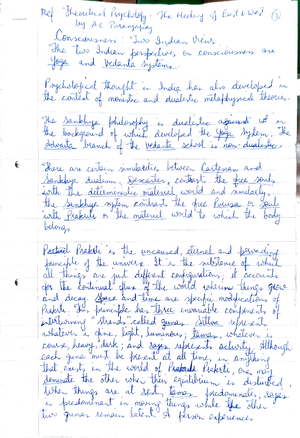 Ref Theoretical Psychology: The Meeting of East & West ①
by A.C. Paranjpe
Consciousness: Two Indian Views
The two Indian perspectives on consciousness are
Yoga and vedanta systems.
Psychological thought in India has also developed in
the context of monistic and dualistic metaphysical theories.
The Sankhya philosophy is dualistic and it is in
the background of which developed the Yoga system. The
Advaita branch of the vedanta school is non-dualistic.
There are certain similarities between Cartesian and
Sankhya dualism, Descartes, contrast the free soul,
with the deterministic material world and similarly,
the sankhya system contrast the free Purusa or Soul
with Prakrti or the material world to which the body
belong.
Prakrti is the uncaused, eternal and pervading
principle of the universe. It is the substance of which
all things are just different configurations; it accounts
for the continual flux of the world wherein things grow
and decay. Space and time are specific modifications of
Prakrti. The principle has three invariable components of
intertwining strands called gunas. Sattva represents
whatever is fine, light, luminous; tamas, whatever is
coarse, heavy, dark; and rajas represents activity. Although
each guna must be present at all times, in anything
that exist, in the world of Prakrti, one may
dominate the other when their equilibrium is disturbed.
When things are at rest, tamas predominates, rajas
is predominant in moving things while the other
two gunas remain latent. A person experiences